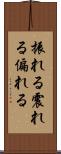 振れる震れ
る偏れる